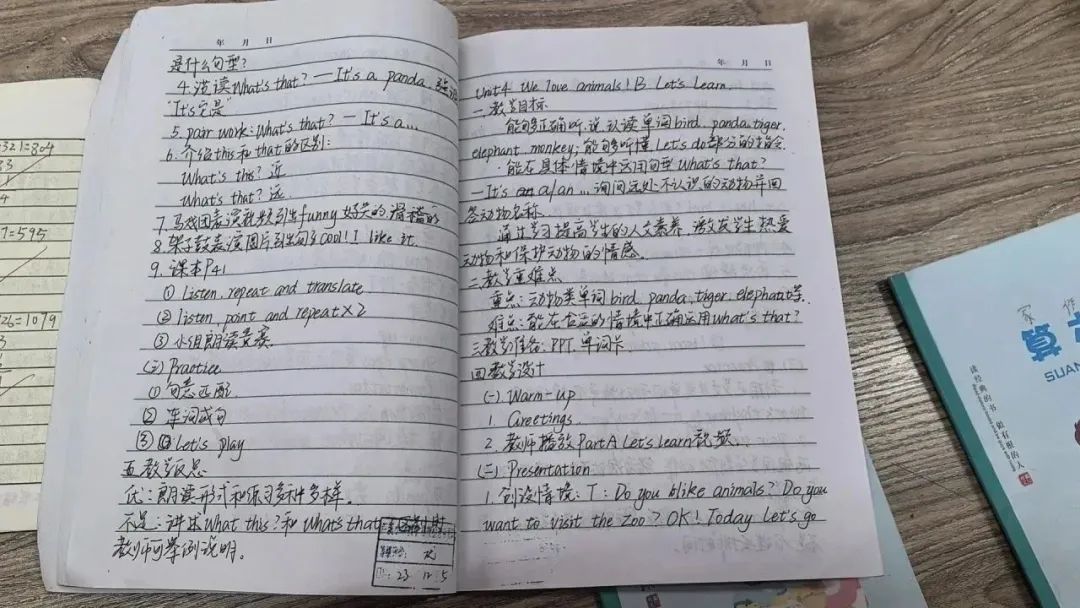 321=804
7=595
26=1079
年 月 日
是什么句型?
4. 泛读What's that? — It's a panda. 强调
"It's它是"
5. pair work: What's that? — It's a...
6. 介绍this和that的区别:
What's this? 近
What's that? 远
7. 马戏团表演视频引出funny 好笑的, 滑稽的
8. 架子鼓表演图片引出句子Cool! I like it.
9. 课本P41
① Listen, repeat and translate.
② listen, point and repeat×2
③ 小组朗读竞赛.
(三) Practice
① 句意匹配
② 连词成句
③ Let's play
五. 教学反思
优: 朗读形式和练习多种多样.
不足: 讲述What this? 和 What's that 区别时
教师可举例说明.
23 12 5
年 月 日
Unit4 We love animals! B Let's learn.
一. 教学目标
能够正确听、说、认读单词bird, panda, tiger,
elephant, monkey; 能够听懂Let's do部分的指令.
能在具体情境中运用句型What's that?
— It's a/an... 询问远处不认识的动物并回
答动物名称.
通过学习提高学生的人文素养, 激发学生热爱
动物和保护动物的情感.
二. 教学重难点
重点: 动物类单词 bird, panda, tiger, elephant等.
难点: 能在合适的情境中正确运用What's that?
三. 教学准备: PPT. 单词卡.
四. 教学设计
(一) Warm-up
1. Greetings.
2. 教师播放Part A Let's learn视频.
(二) Presentation
1. 创设情境: T: Do you blike animals? Do you
want to visit the zoo? OK! Today let's go
家 作
算
SUAN
读经典的书 做有根的人